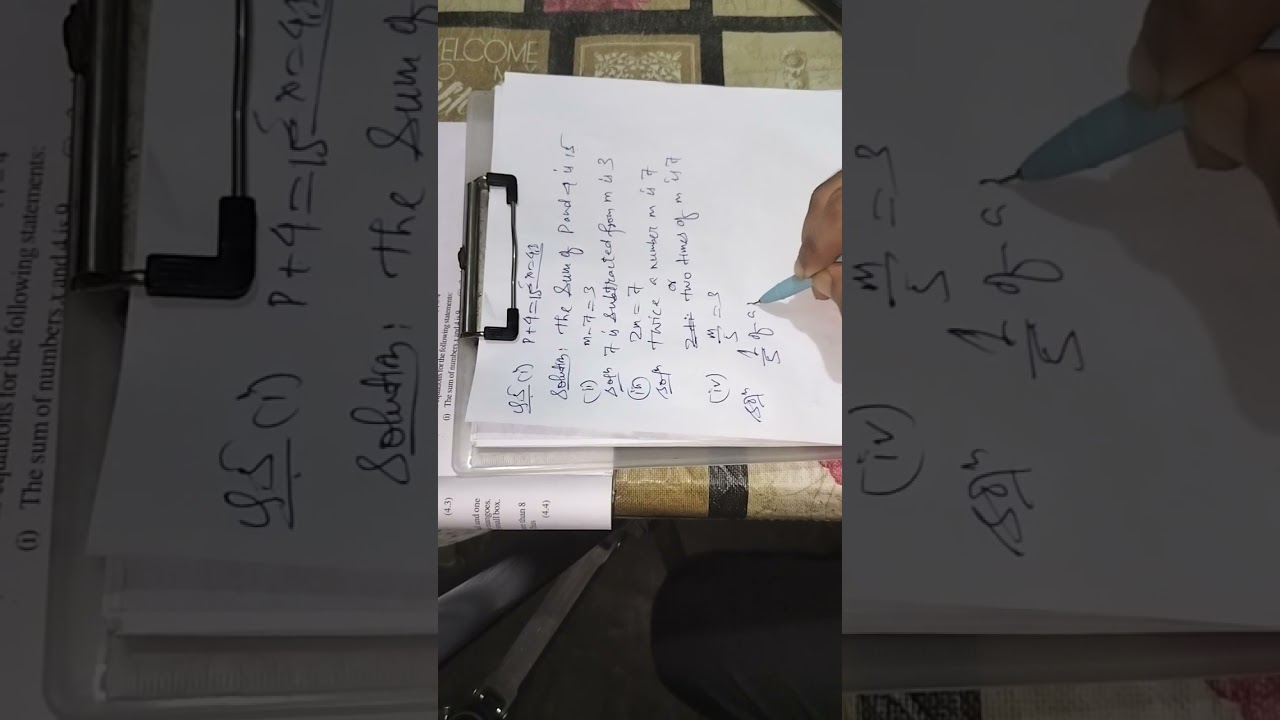 WELCOME
TO MY
equations for the following statements:
(i) The sum of numbers x and 4 is 9
(4.3)
and one
mangoes.
small box.
than 8
(4.4)
Q.5 (i) P+4=15
Solution: the sum of P and 4 is 15
(ii) m-7=3
Soln 7 is subtracted from m is 3
(iii) 2m=7
Soln twice a number m is 7
or
two times of m is 7
(iv) m/5 = 3
Soln 1/5 of a